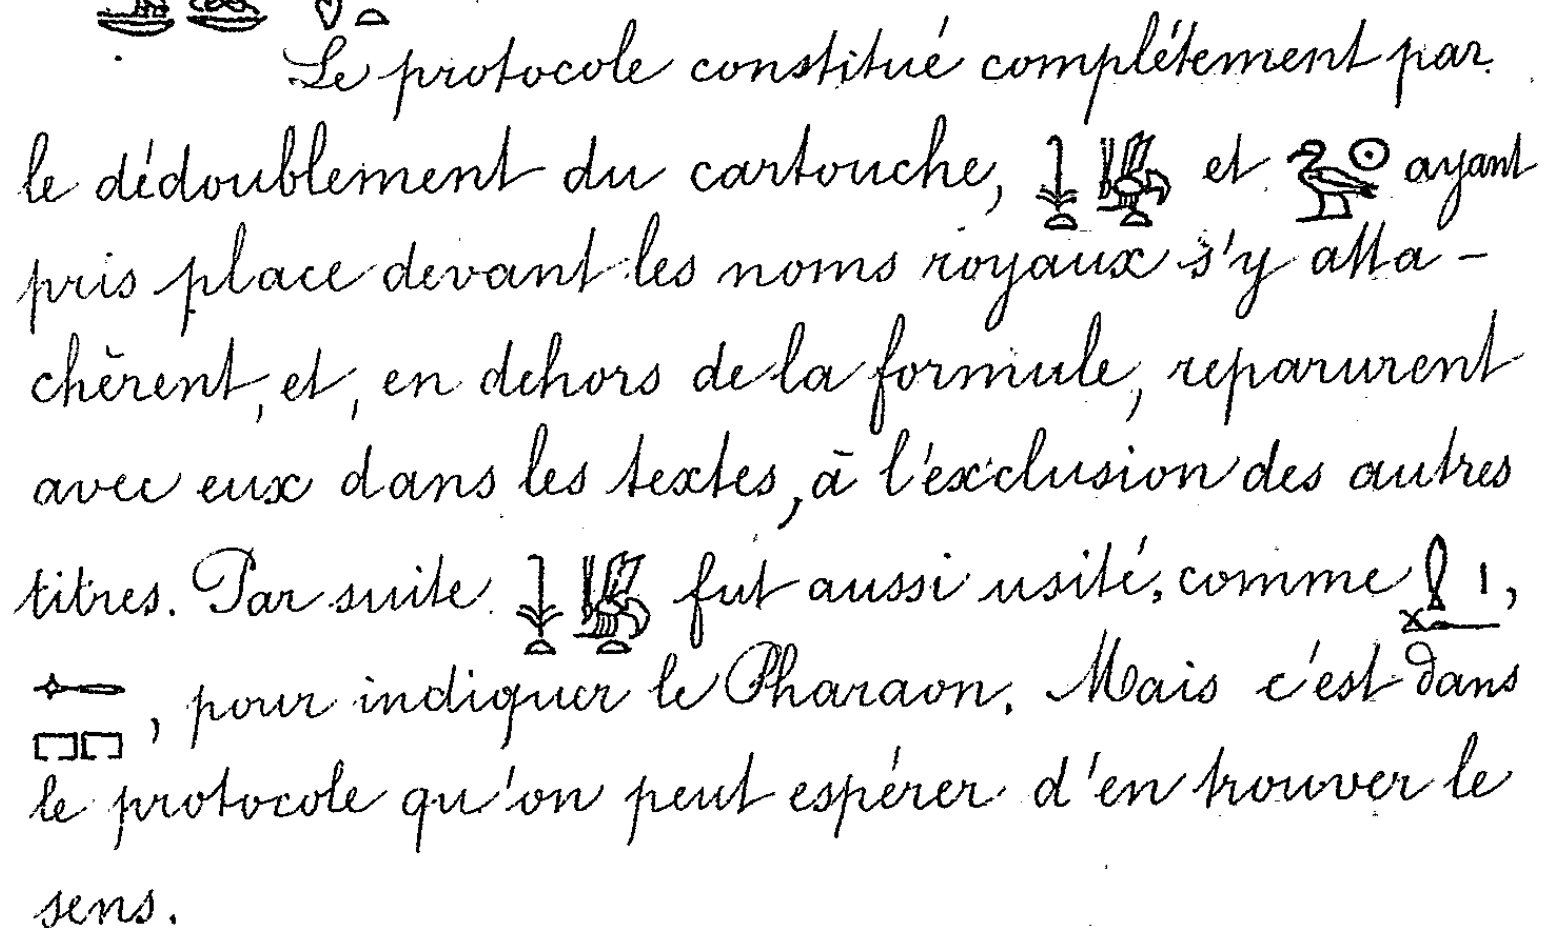 Le protocole constitué complétement par
le dédoublement du cartouche, 𓇓𓏏𓆤𓏏 et 𓅭𓇳 ayant
pris place devant les noms royaux s'y atta-
chèrent, et, en dehors de la formule, reparurent
avec eux dans les textes, à l'exclusion des autres
titres. Par suite 𓇓𓏏𓆤𓏏 fut aussi usité, comme 𓍛𓏤𓆑,
𓉻𓉐𓉐, pour indiquer le Pharaon. Mais c'est dans
le protocole qu'on peut espérer d'en trouver le
sens.